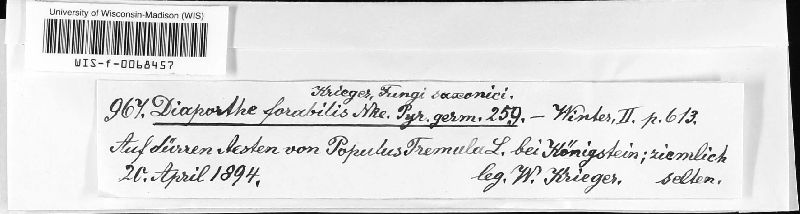 University of Wisconsin-Madison (WIS)
WIS-f-0068457
Krieger, Fungi saxonici.
967. Diaporthe forabilis Nke. Pyr. germ. 259. – Winter, II. p. 613.
Auf dürren Aesten von Populus Tremula L. bei Königstein; ziemlich
20. April 1894. leg. W. Krieger. selten.